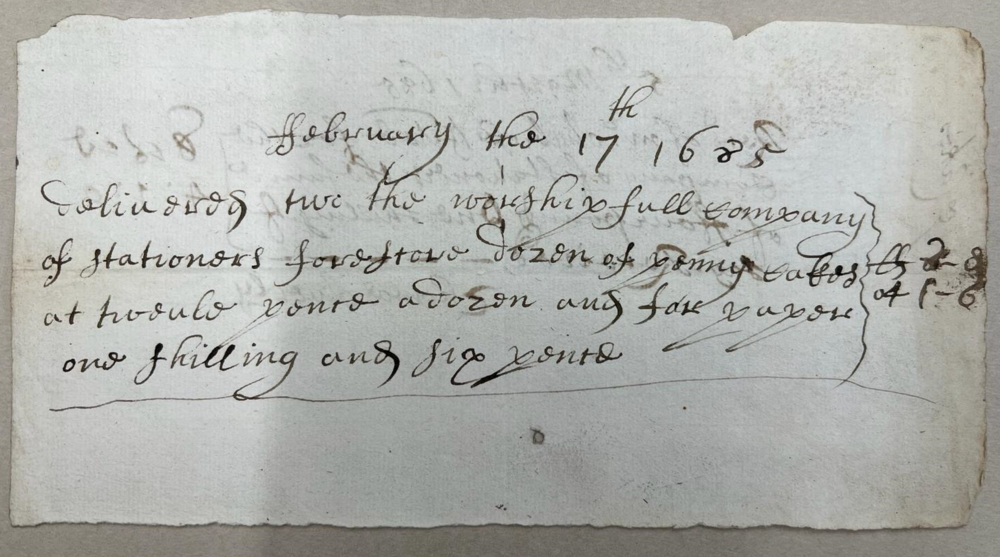 ffebruary the 17th 1685
deliuered two the worshipfull company
of stationers forescore dozen of penny cakes
at tweule pence adozen and for paper
one shilling and six pence
04 1-6